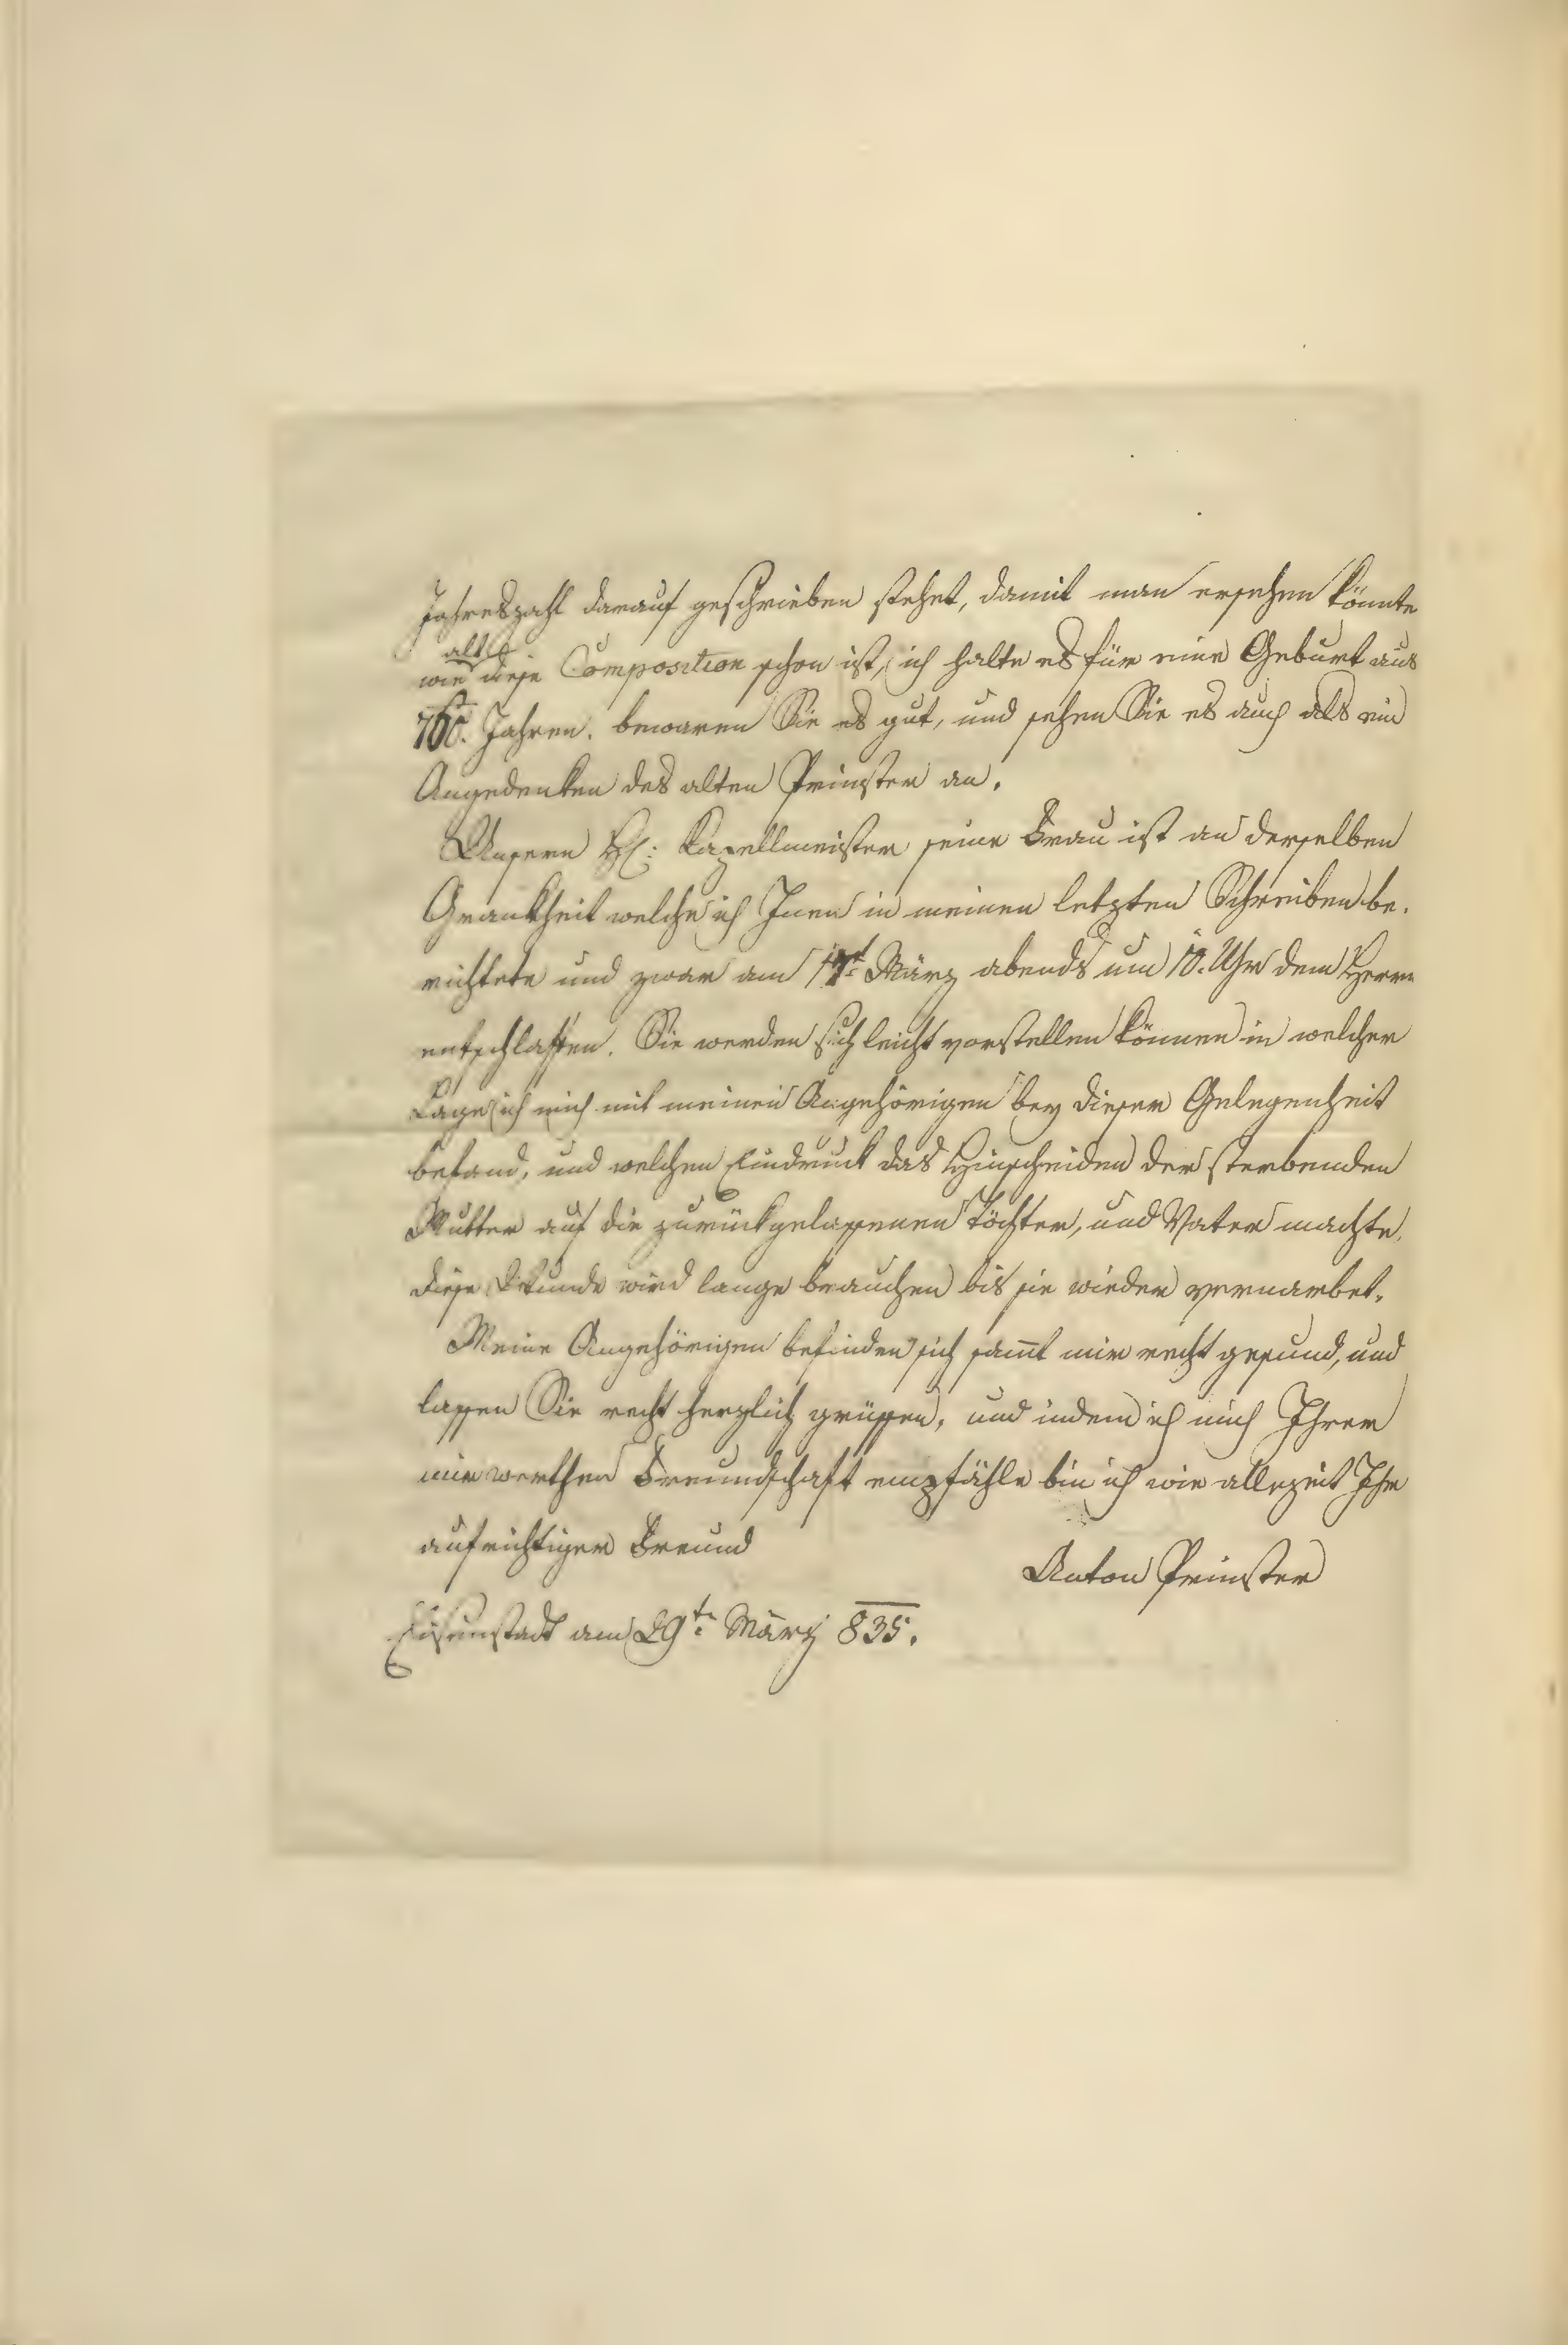 Jahreszahl darauf geschrieben stehet, damit man ersehen könnte
alt
wie diese Composition schon ist, ich halte es für eine Geburt aus
760. Jahren. bewaren Sie es gut, und sehen Sie es auch als ein
Angedenken des alten Prinster an.
Unsern H: Kapellmeister seine Frau ist an derselben
Grankheit welche ich Inen in meinen letzten Schreiben be-
richtete und zwar am 17t März abends um 10. Uhr dem Herrn
entschlaffen. Sie werden sich leicht vorstellen können in welcher
Lage ich mich mit meinen Angehörigen bey dieser Gelegenheit
befand, und welchen Eindruck das Hinscheiden der sterbenden
Mutter auf die zurückgelassenen Töchter, und Vater machte.
diese Wunde wird lange brauchen bis sie wieder vernarbet.
Meine Angehörigen befinden sich sam̄t mir recht gesund, und
lassen Sie recht herzlich grüssen, und indem ich mich Ihrer
mir werthen Freundschaft empfähle bin ich wie allezeit Ihr
aufrichtiger Freund
Anton Prinster
Eisenstadt am 29te März 835.